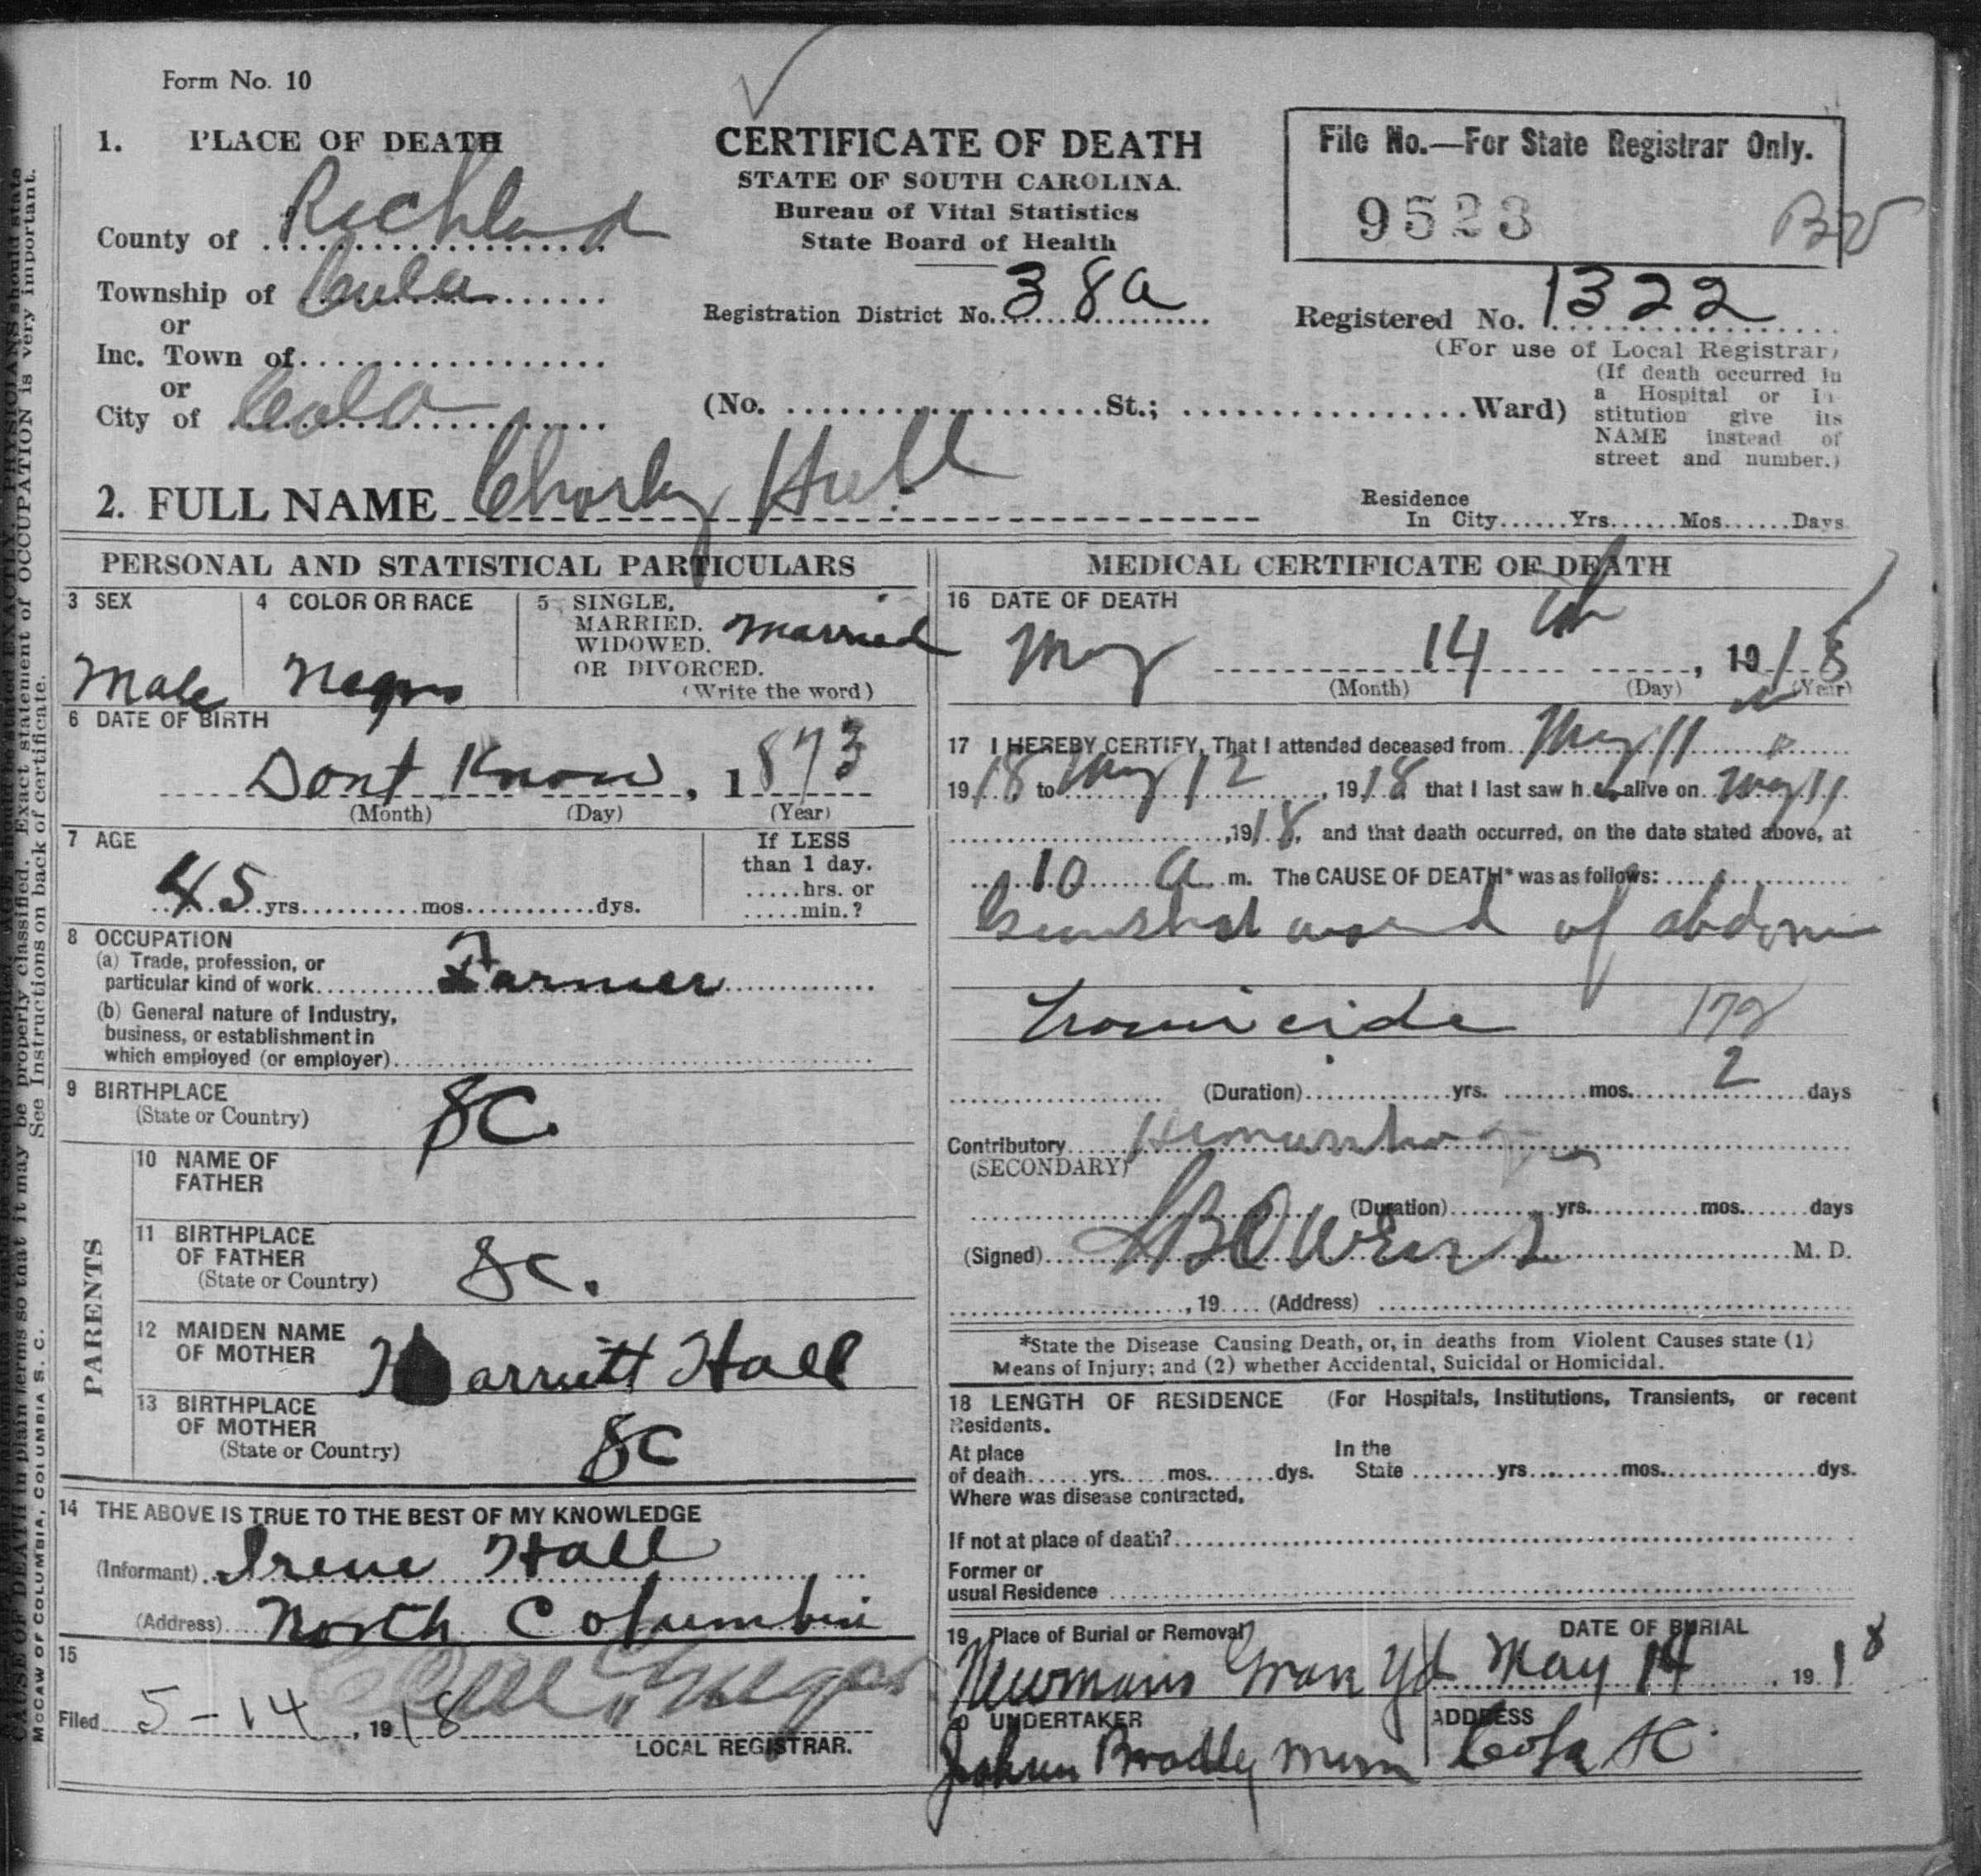 Form No. 10
1. PLACE OF DEATH
County of Richland
Township of Cola
or
Inc. Town of
or
City of Cola
CERTIFICATE OF DEATH
STATE OF SOUTH CAROLINA.
Bureau of Vital Statistics
State Board of Health
Registration District No. 38a
(No. St.; Ward)
File No.—For State Registrar Only.
9523
Registered No. 1322
(For use of Local Registrar)
(If death occurred in
a Hospital or In-
stitution give its
NAME instead of
street and number.)
2. FULL NAME Charley Hall
Residence
In City Yrs. Mos. Days
PERSONAL AND STATISTICAL PARTICULARS
3 SEX
Male
4 COLOR OR RACE
Negro
5 SINGLE,
MARRIED.
WIDOWED.
OR DIVORCED.
(Write the word)
Married
6 DATE OF BIRTH
Dont Know, 1873
(Month) (Day) (Year)
7 AGE
45 yrs. mos. dys.
If LESS
than 1 day.
hrs. or
min.?
8 OCCUPATION
(a) Trade, profession, or
particular kind of work Farmer
(b) General nature of Industry,
business, or establishment in
which employed (or employer)
9 BIRTHPLACE
(State or Country)
SC.
PARENTS
10 NAME OF
FATHER
11 BIRTHPLACE
OF FATHER
(State or Country)
SC.
12 MAIDEN NAME
OF MOTHER
Harriett Hall
13 BIRTHPLACE
OF MOTHER
(State or Country)
SC
14 THE ABOVE IS TRUE TO THE BEST OF MY KNOWLEDGE
(Informant) Irene Hall
(Address) North Columbia
15
Filed 5-14, 1918
LOCAL REGISTRAR.
MEDICAL CERTIFICATE OF DEATH
16 DATE OF DEATH
May 14th, 1918
(Month) (Day) (Year)
17 I HEREBY CERTIFY, That I attended deceased from May 11
1918 to May 12, 1918 that I last saw h alive on May 11
, 1918, and that death occurred, on the date stated above, at
10 a m. The CAUSE OF DEATH* was as follows:
Gunshot wound of abdomen
Homicide 172
(Duration) yrs. mos. 2 days
Contributory Hemorrhage
(SECONDARY)
(Duration) yrs. mos. days
(Signed) Owens M. D.
, 19 (Address)
*State the Disease Causing Death, or, in deaths from Violent Causes state (1)
Means of Injury; and (2) whether Accidental, Suicidal or Homicidal.
18 LENGTH OF RESIDENCE (For Hospitals, Institutions, Transients, or recent
Residents.
At place
of death yrs. mos. dys.
In the
State yrs. mos. dys.
Where was disease contracted,
If not at place of death?
Former or
usual Residence
19 Place of Burial or Removal
Newmans Grave Yd
DATE OF BURIAL
May 14, 1918
20 UNDERTAKER
Bradley
ADDRESS
Cola SC
See Instructions on back of certificate.
McCAW OF COLUMBIA, COLUMBIA S. C.